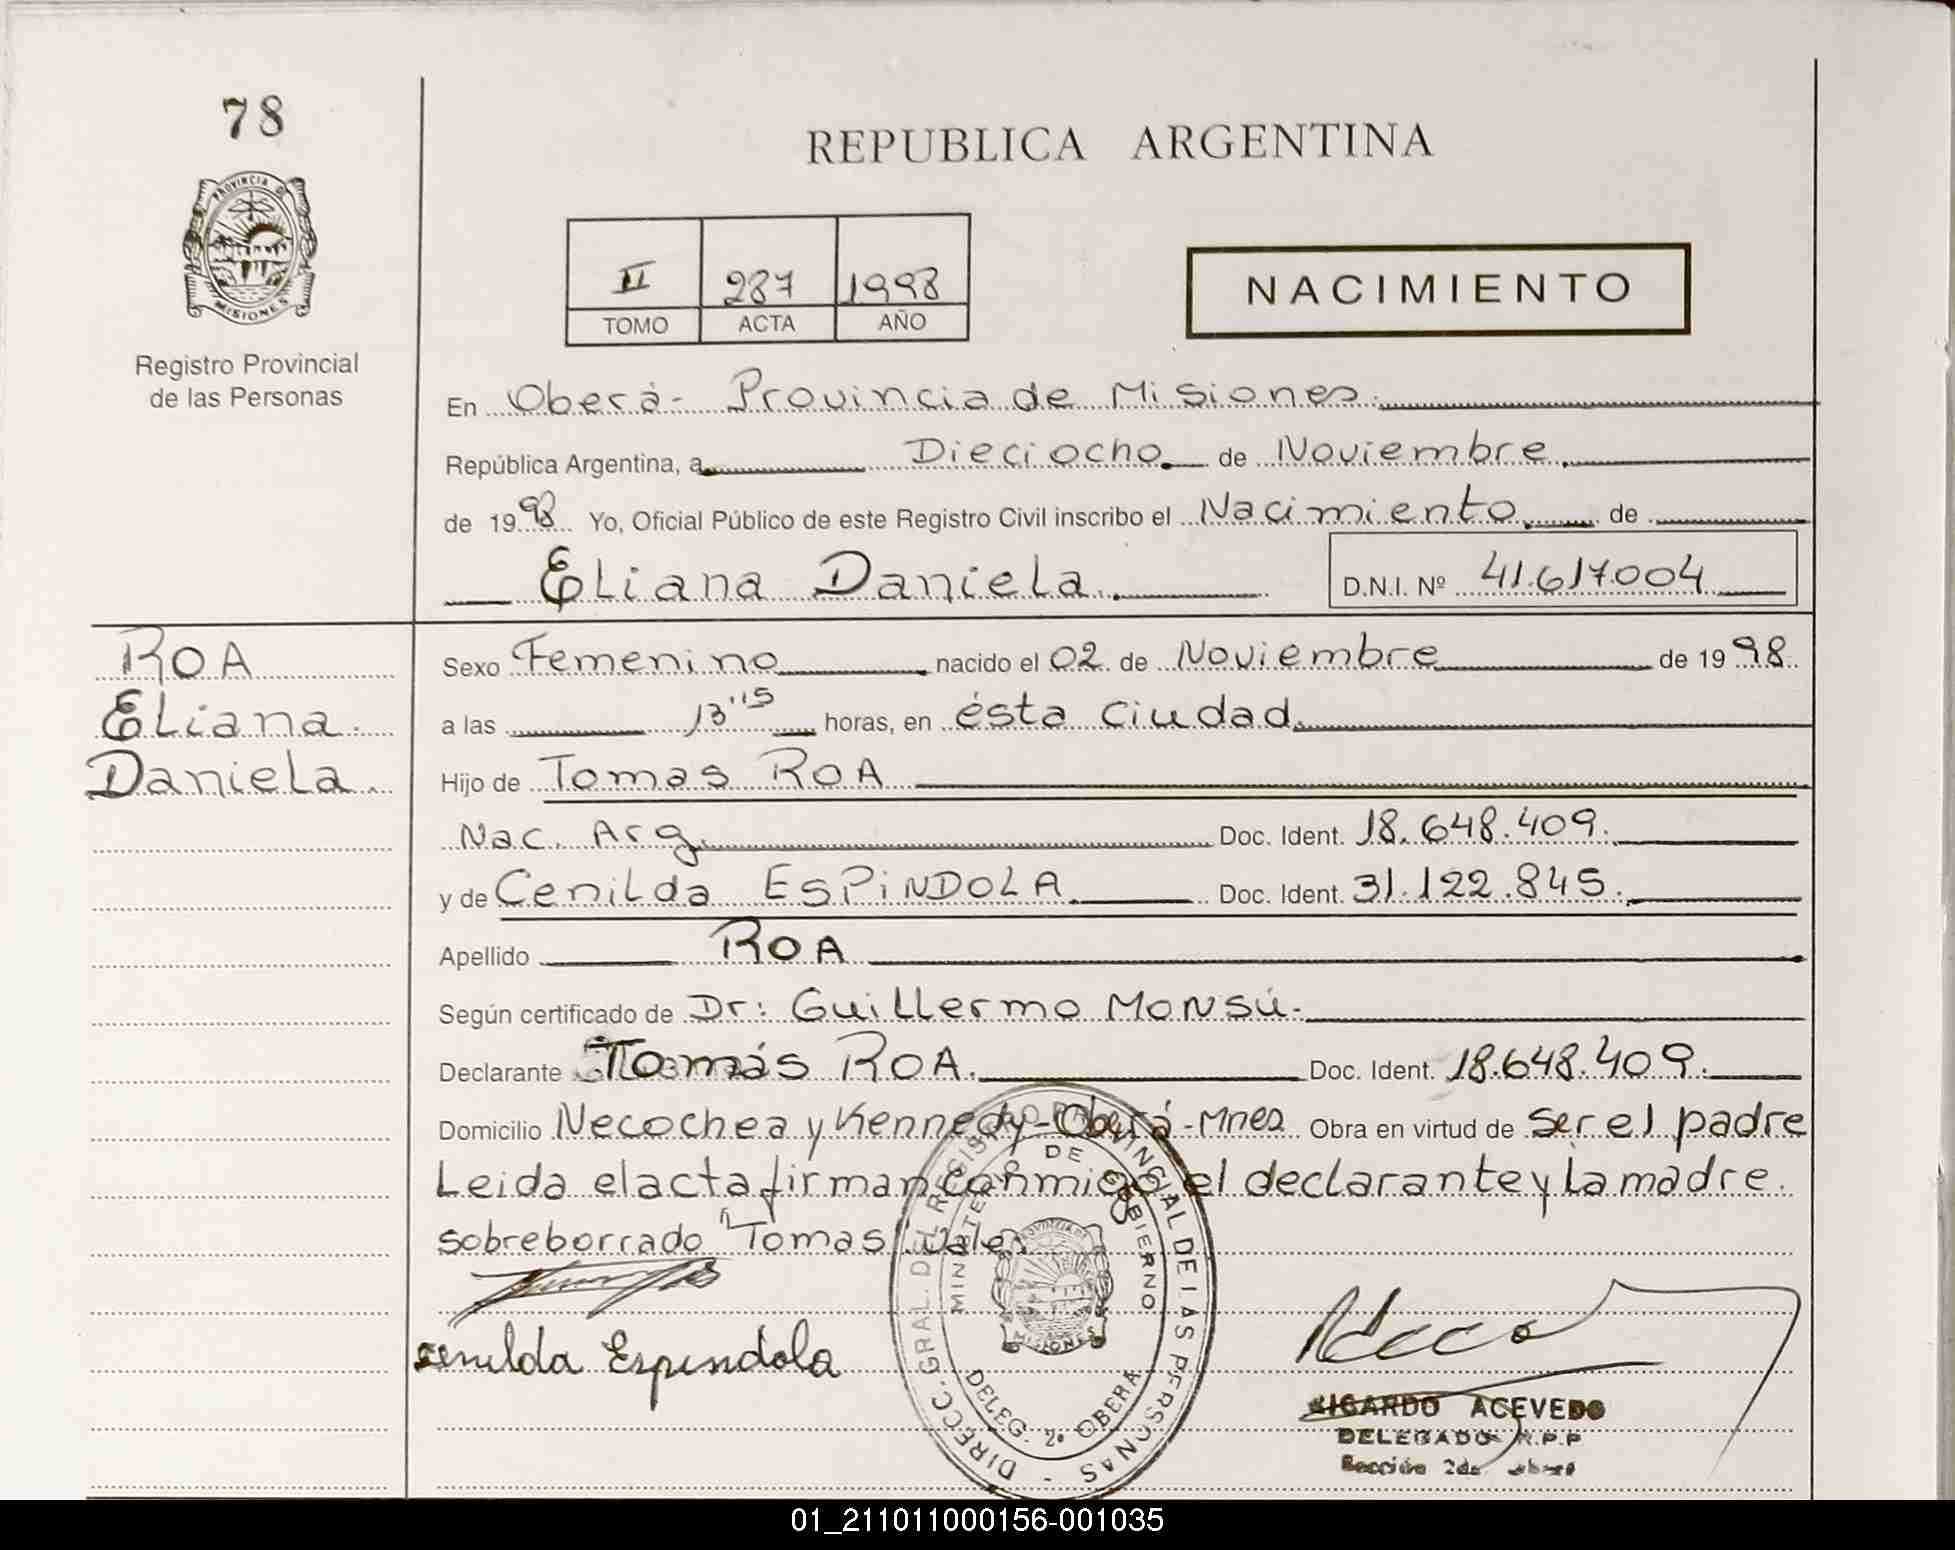 78
REPUBLICA ARGENTINA
PROVINCIA DE
MISIONES
Registro Provincial
de las Personas
II 287 1998
TOMO ACTA AÑO
NACIMIENTO
En Oberá - Provincia de Misiones.
República Argentina, a Dieciocho de Noviembre
de 1998 Yo, Oficial Público de este Registro Civil inscribo el Nacimiento de
Eliana Daniela. D.N.I. Nº 41.617.004
ROA
Eliana.
Daniela.
Sexo Femenino nacido el 02 de Noviembre de 1998
a las 13'15 horas, en ésta ciudad.
Hijo de Tomas ROA
Nac. Arg. Doc. Ident. 18.648.409.
y de Cenilda ESPINDOLA Doc. Ident. 31.122.845.
Apellido ROA
Según certificado de Dr: Guillermo MONSÚ.
Declarante Tomás ROA. Doc. Ident. 18.648.409.
Domicilio Necochea y Kennedy - Oberá - Mnes Obra en virtud de ser el padre
Leida el acta firman conmigo el declarante y la madre.
sobreborrado "Tomas": Vale.
Cenilda Espindola
DIRECC. GRAL. DEL REGISTRO PROVINCIAL DE LAS PERSONAS -
MINISTERIO DE GOBIERNO
DELEG. 2º OBERA
MISIONES
RICARDO ACEVEDO
DELEGADO R.P.P
Sección 2da. Oberá
01_211011000156-001035